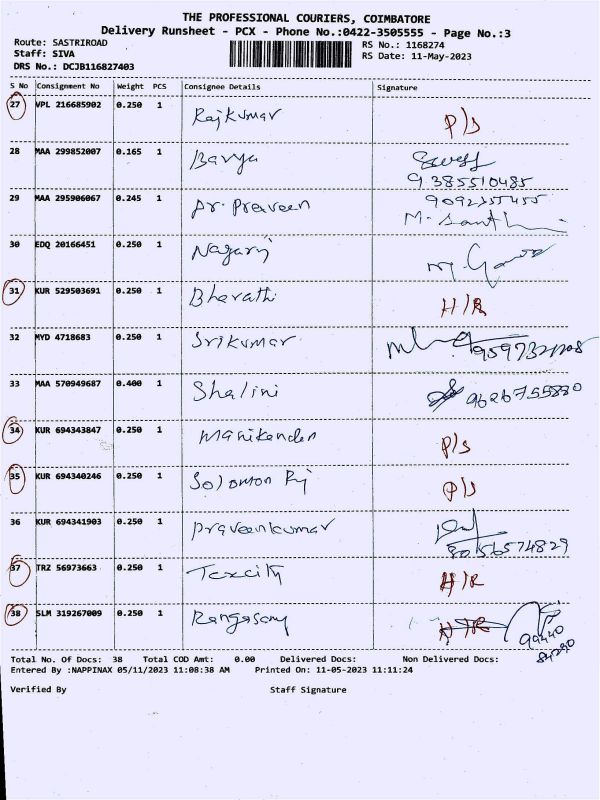 THE PROFESSIONAL COURIERS, COIMBATORE
Delivery Runsheet - PCX - Phone No.:0422-3505555 - Page No.:3
Route: SASTRIROAD
Staff: SIVA
DRS No.: DCJB116827403
RS No.: 1168274
RS Date: 11-May-2023
S No Consignment No Weight PCS Consignee Details Signature
27 VPL 216685902 0.250 1 Rajkumar P/s
28 MAA 299852007 0.165 1 Bavya
9385510485
29 MAA 295906067 0.245 1 Dr. Praveen 9092355455
M. Santhi
30 EDQ 20166451 0.250 1 Nagaraj
31 KUR 529503691 0.250 1 Bharathi H/R
32 MYD 4718683 0.250 1 Srikumar
33 MAA 570949687 0.400 1 Shalini 9626755880
34 KUR 694343847 0.250 1 Manikandan P/s
35 KUR 694340246 0.250 1 Solomon Rj P/s
36 KUR 694341903 0.250 1 Praveenkumar
8056574829
37 TRZ 56973663 0.250 1 Texcity H/R
38 SLM 319267009 0.250 1 Rangasamy H/R
99440
84290
Total No. Of Docs: 38 Total COD Amt: 0.00 Delivered Docs: Non Delivered Docs:
Entered By :NAPPINAX 05/11/2023 11:08:38 AM Printed On: 11-05-2023 11:11:24
Verified By Staff Signature